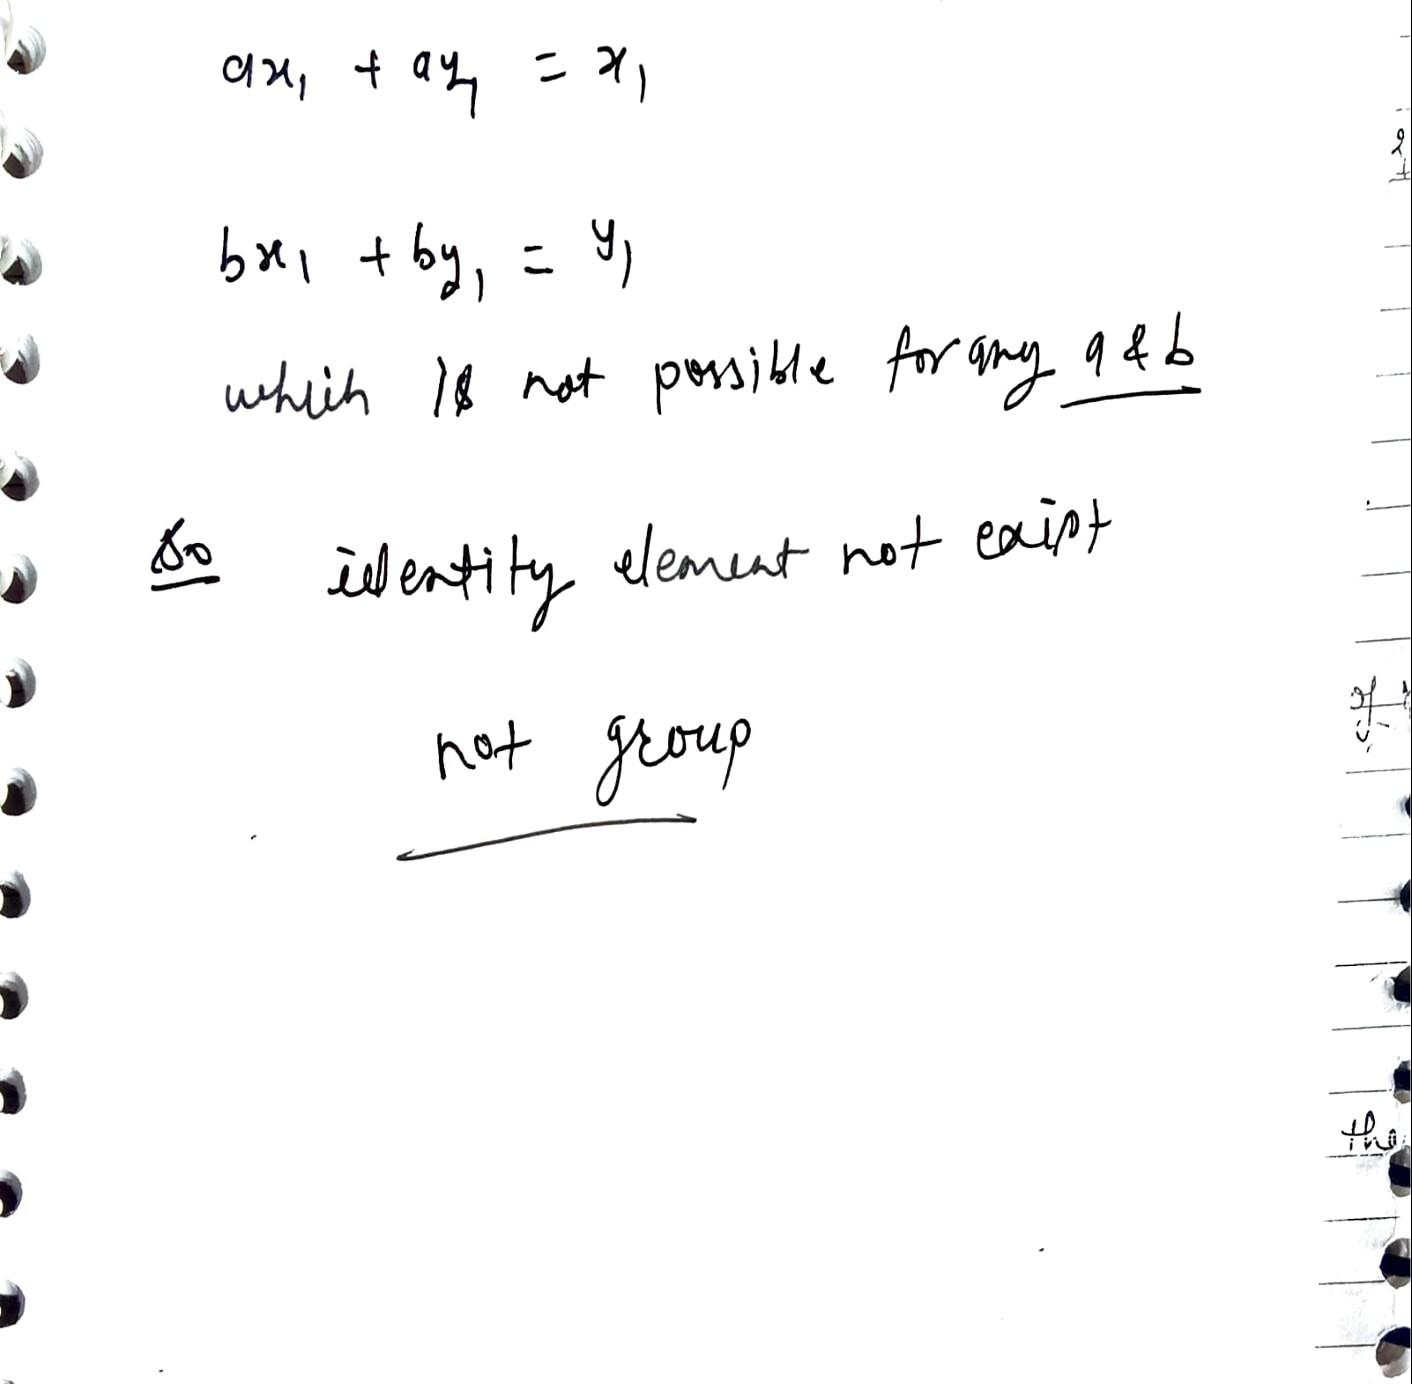 ax₁ + ay₁ = x₁
bx₁ + by₁ = y₁
which is not possible for any a & b
So identity element not exist
not group
the